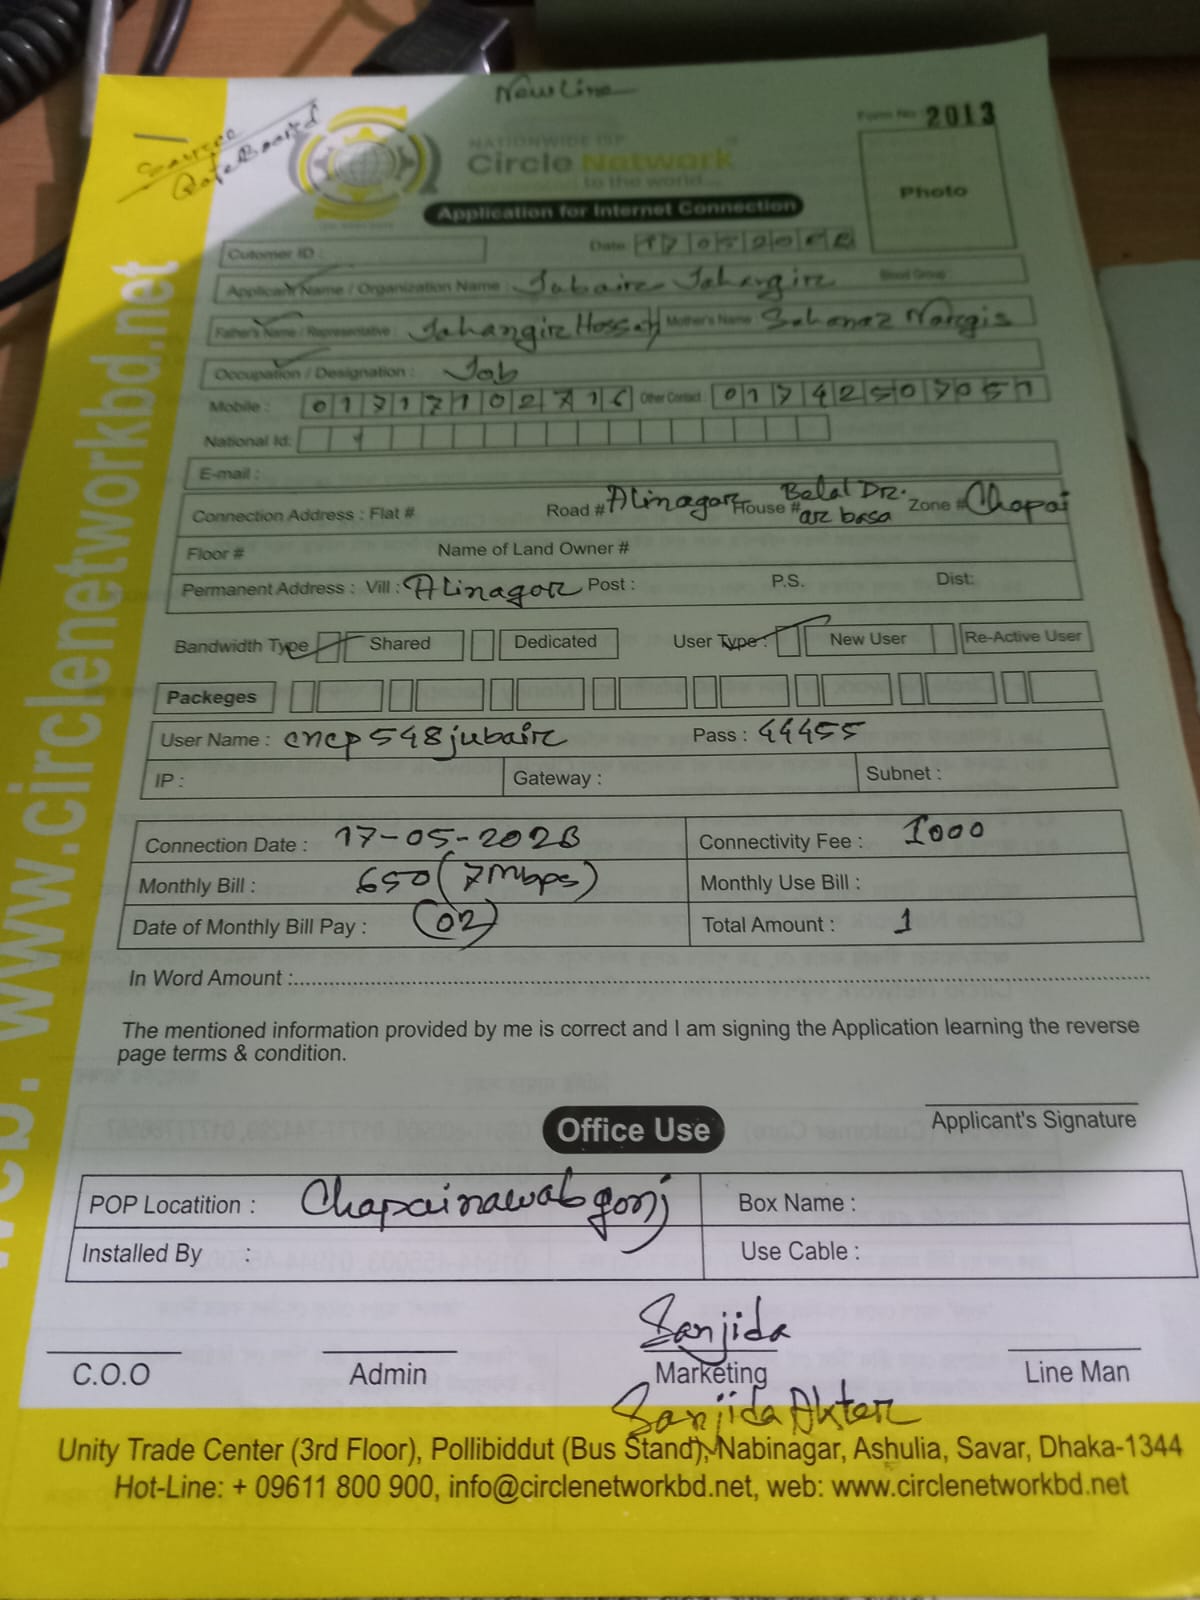 New Line
Form No 2013
Source
NATIONWIDE ISP
Circle Network
to the world...
Photo
Application for Internet Connection
Cutomer ID : Date:
Applicant Name / Organization Name : Jubair Jahangir Blood Group :
Father's Name / Representative : Jahangir Hossain Mother's Name : Sahanaz Nargis
Occupation / Designation : Job
Mobile : 01717102716 Other Contact : 01742507051
National Id:
E-mail :
Connection Address : Flat # Road # Alinagar House # Belal Dr. ar basa Zone # Chapai
Floor # Name of Land Owner #
Permanent Address : Vill : Alinagor Post : P.S. Dist:
Bandwidth Type Shared Dedicated User Type : New User Re-Active User
Packeges
User Name : cncp548jubair Pass : 44455
IP : Gateway : Subnet :
Connection Date : 17-05-2023 Connectivity Fee : 1000
Monthly Bill : 650 (7Mbps) Monthly Use Bill :
Date of Monthly Bill Pay : (02) Total Amount : 1
In Word Amount :
The mentioned information provided by me is correct and I am signing the Application learning the reverse
page terms & condition.
Applicant's Signature
Office Use
POP Locatition : Chapainawabgonj Box Name :
Installed By : Use Cable :
Sanjida
C.O.O Admin Marketing Line Man
Sanjida Akter
Unity Trade Center (3rd Floor), Pollibiddut (Bus Stand), Nabinagar, Ashulia, Savar, Dhaka-1344
Hot-Line: + 09611 800 900, info@circlenetworkbd.net, web: www.circlenetworkbd.net
web: www.circlenetworkbd.net